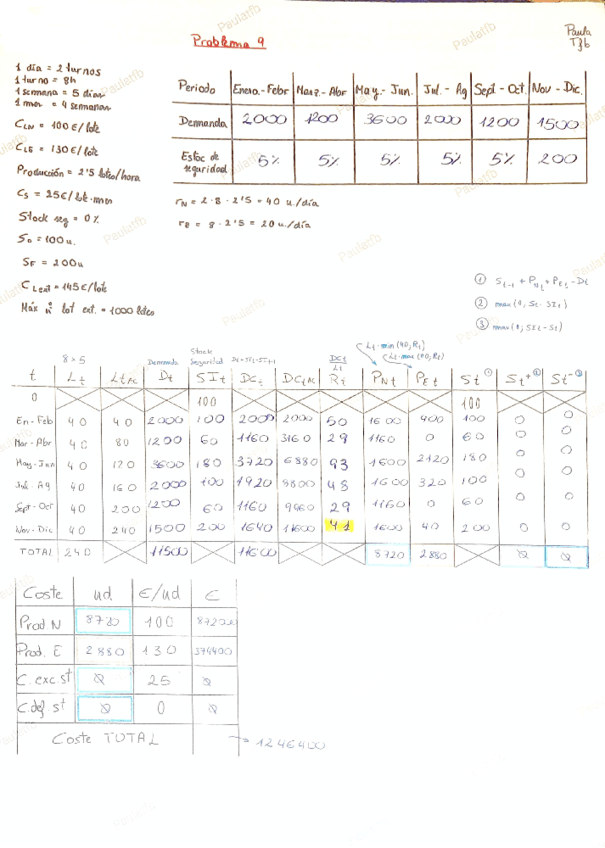 Problema 9
Paula
T3b
1 día = 2 turnos
1 turno = 8h
1 semana = 5 días
1 mes = 4 semanas
CLN = 100€/lote
CLE = 130€/lote
Producción = 2'5 lotes/hora
CS = 25€/lot·mes
Stock seg = 0%
S0 = 100u.
SF = 200u
CLext = 145€/lote
Máx nº lot ext. = 1000 lotes
Periodo Enero.-Febr Marz.-Abr May.-Jun. Jul.-Ag Sept-Oct. Nov-Dic.
Demanda 2000 1200 3600 2000 1200 1500
Estoc de seguridad 5% 5% 5% 5% 5% 200
rN = 2·8·2'5 = 40 u./día
rE = 8·2'5 = 20 u./día
① St-1 + PNt + PEt - Dt
② max(0, St-SIt)
③ max(0, SIt-St)
Lt·min(40, Rt)
Lt·max(40, Rt)
8×5 Demanda Stock Seguridad Dt+SIt-SIt-1 DCt/Lt
t Lt LtAc Dt SIt DCt DCtAc Rt PNt PEt St① St+② St-③
0 100 100
En-Feb 40 40 2000 100 2000 2000 50 1600 400 100 0 0
Mar-Abr 40 80 1200 60 1160 3160 29 1160 0 60 0 0
May-Jun 40 120 3600 180 3720 6880 93 1600 2120 180 0 0
Jul-Ag 40 160 2000 100 1920 8800 48 1600 320 100 0 0
Sept-Oct 40 200 1200 60 1160 9960 29 1160 0 60 0 0
Nov-Dic 40 240 1500 200 1640 11600 41 1600 40 200 0 0
TOTAL 240 11500 11600 8720 2880 0 0
Coste ud €/ud €
Prod.N 8720 100 872000
Prod.E 2880 130 374400
C.exc.st 0 25 0
C.def.st 0 0 0
Coste TOTAL → 1246400
Paulatfb
Paulatfb
Paulatfb
Paulatfb
Paulatfb
Paulatfb
Paulatfb
Paulatfb
Paulatfb